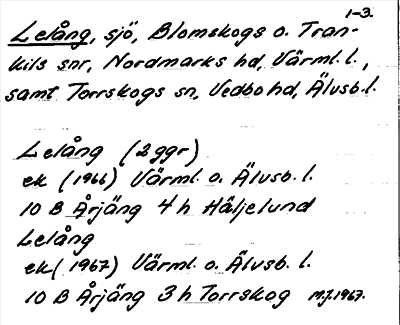 1-3.
Lelång, sjö, Blomskogs o. Tran-
kils snr, Nordmarks hd, Värml. l.,
samt Torrskogs sn, Vedbo hd, Älvsb. l.
Lelång (2 ggr)
ek (1966) Värml. o. Älvsb. l.
10 B Årjäng 4 h Häljelund
Lelång
ek (1967) Värml. o. Älvsb. l.
10 B Årjäng 3 h Torrskog M.J. 1967.